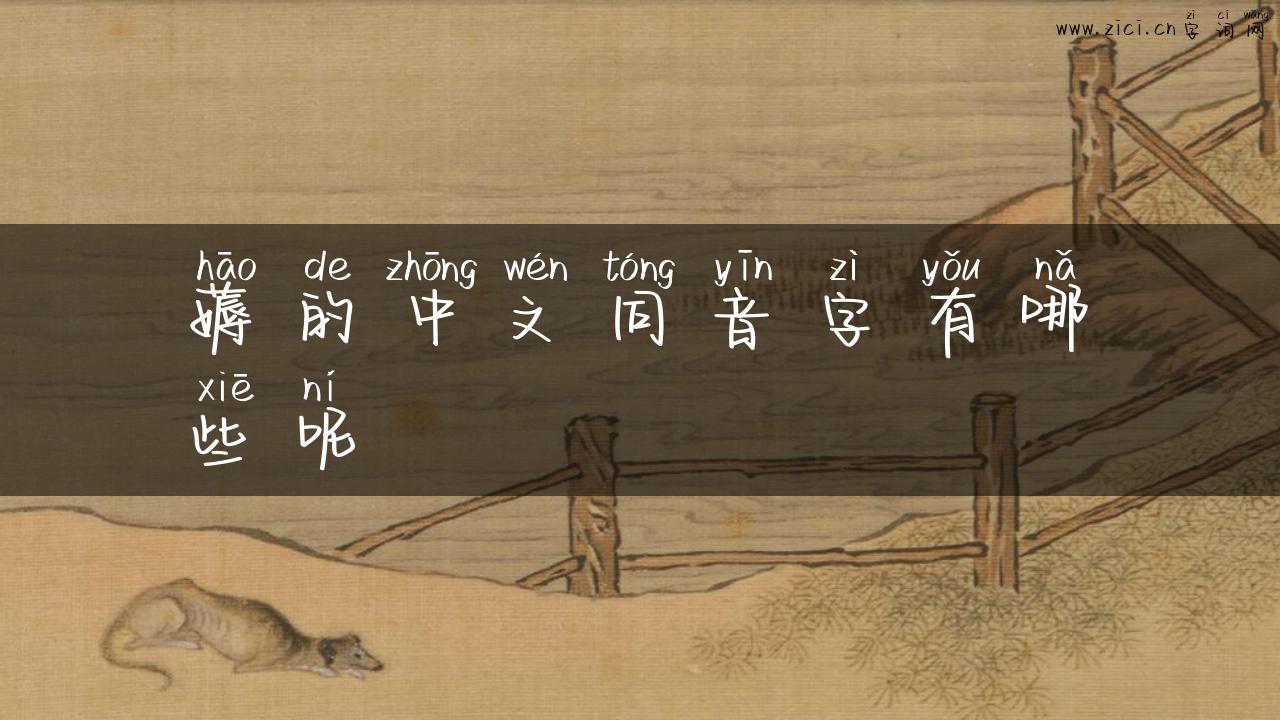 zi ci wang
www.zici.cn字词网
hāo de zhōng wén tóng yīn zì yǒu nǎ
薅的中文同音字有哪
xiē ní
些呢